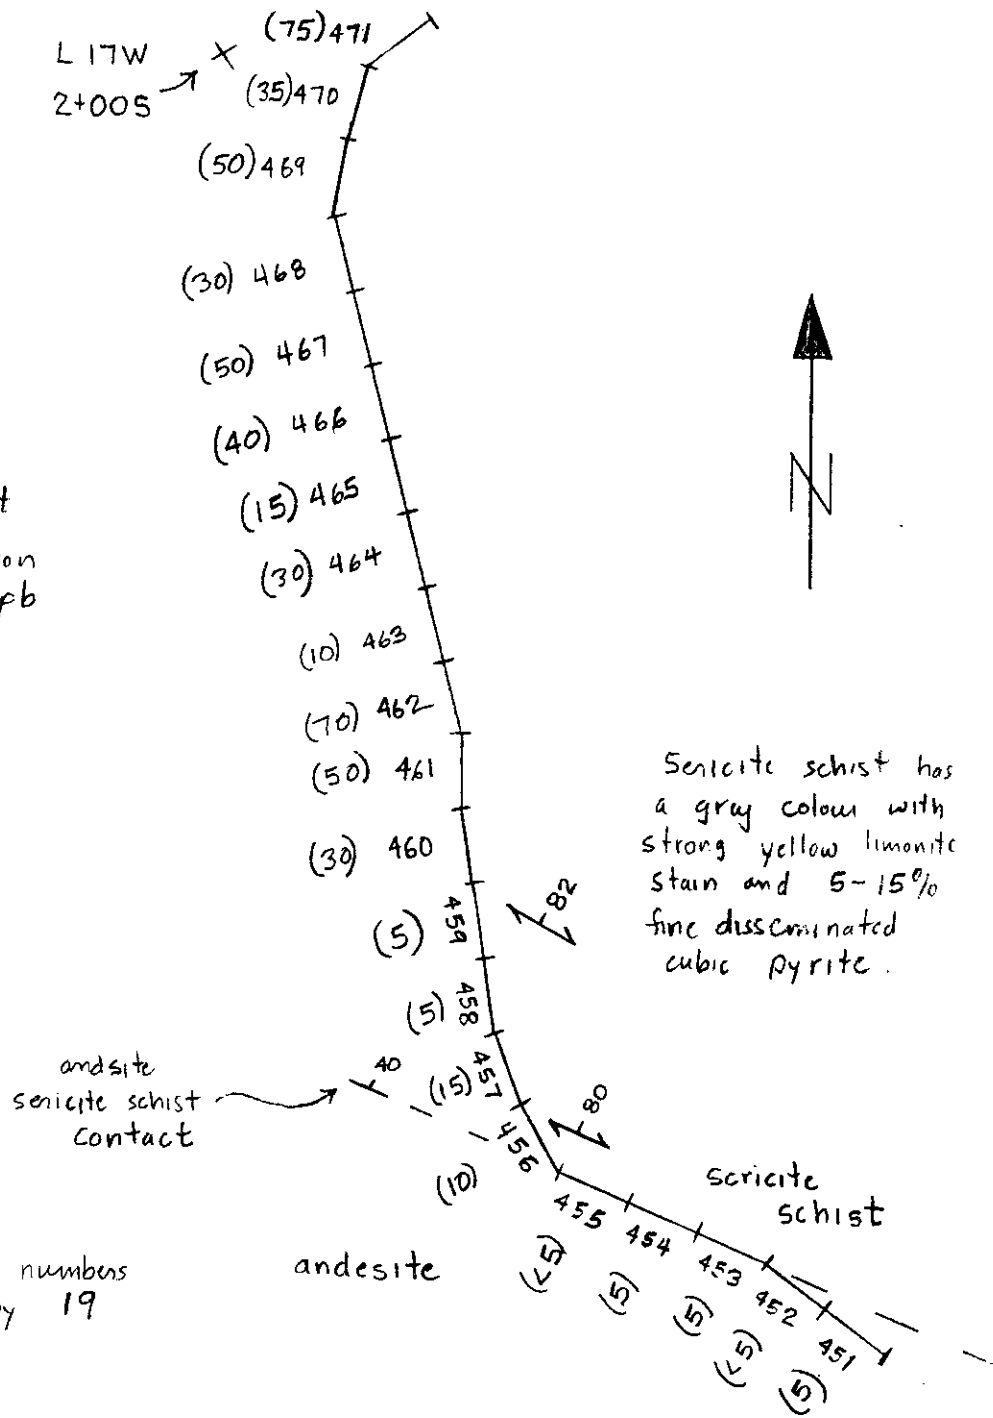 (75) 471
L 17W
2+00S
(35) 470
(50) 469
(30) 468
(50) 467
(40) 466
(15) 465
(30) 464
(10) 463
(70) 462
(50) 461
(30) 460
(5) 459
(5) 458
(15) 457
(10) 456
455 (<5)
454 (5)
453 (5)
452 (<5)
451 (5)
N
Sericite schist has
a gray colour with
strong yellow limonite
stain and 5-15%
fine disseminated
cubic pyrite.
82
80
40
andsite
sericite schist
contact
sericite
schist
andesite
numbers
19